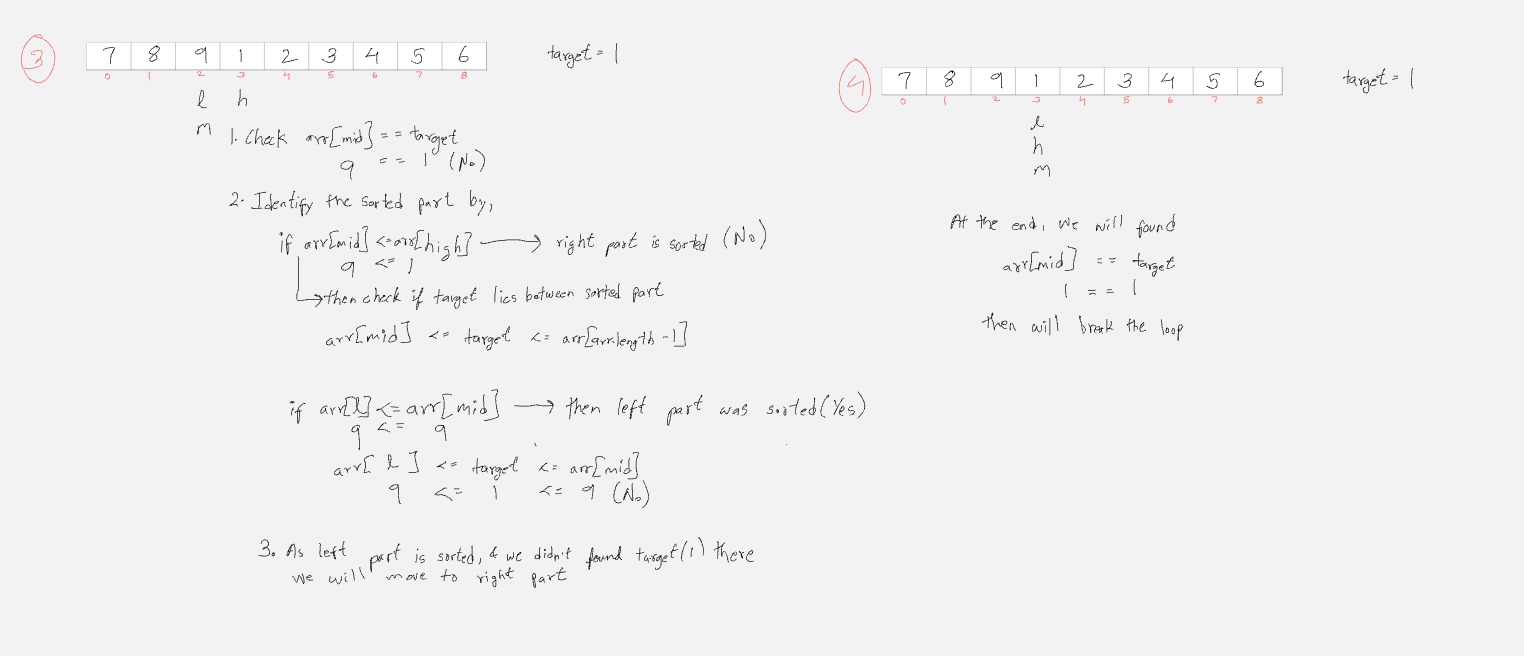 3
7 8 9 1 2 3 4 5 6
target = 1
0 1 2 3 4 5 6 7 8
l h
m
1. Check arr[mid] == target
9 == 1 (No)
2. Identify the sorted part by,
if arr[mid] <= arr[high] → right part is sorted (No)
9 <= 1
↳ then check if target lies between sorted part
arr[mid] <= target <= arr[arr.length -1]
if arr[l] <= arr[mid] → then left part was sorted (Yes)
9 <= 9
arr[ l ] <= target <= arr[mid]
9 <= 1 <= 9 (No)
3. As left part is sorted, & we didn't found target(1) there
we will move to right part
4
7 8 9 1 2 3 4 5 6
target = 1
0 1 2 3 4 5 6 7 8
l
h
m
At the end, we will found
arr[mid] == target
1 == 1
then will break the loop